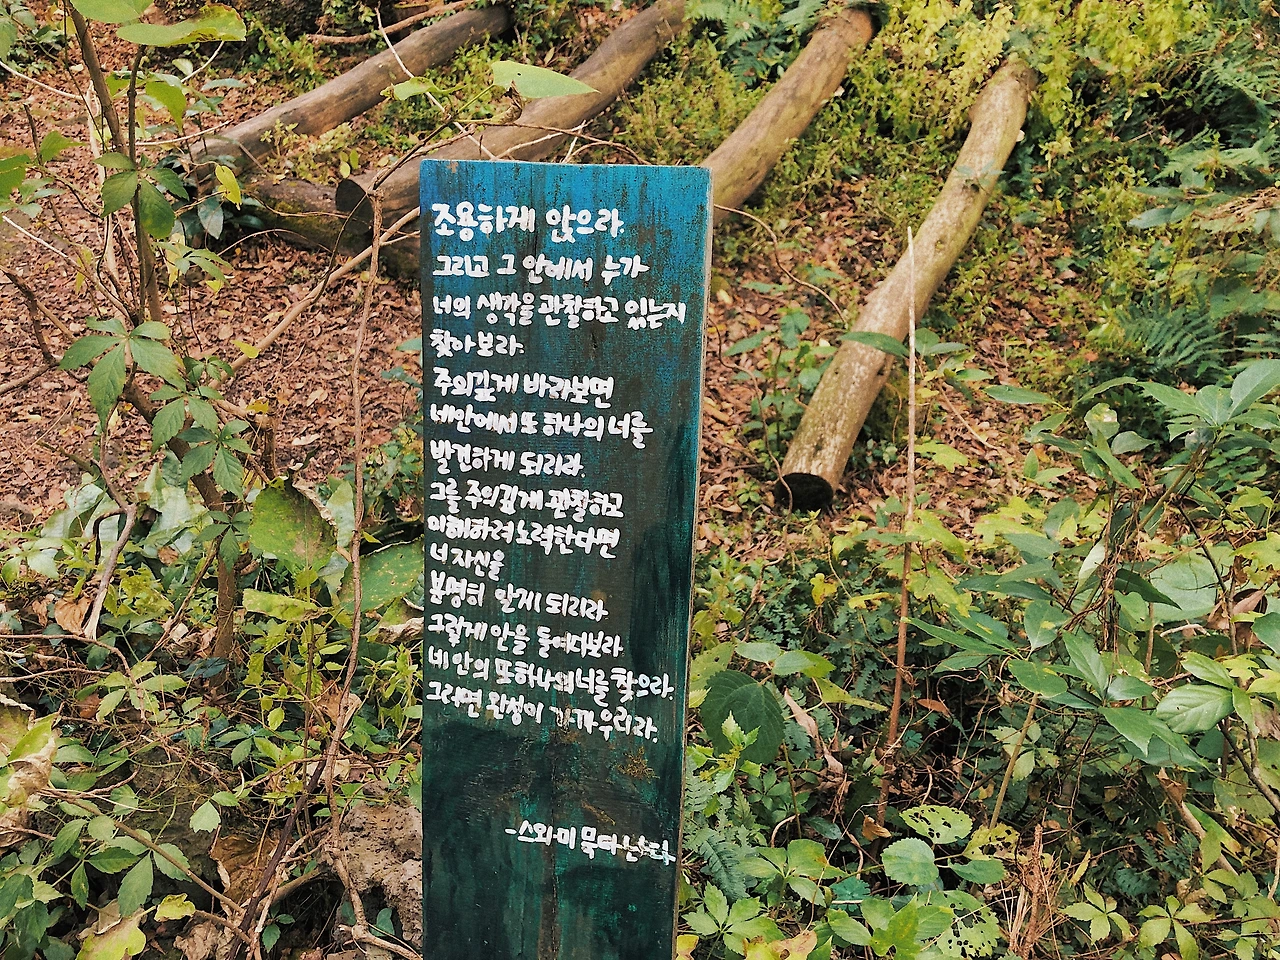 조용하게 앉으라.
그리고 그 안에서 누가
너의 생각을 관찰하고 있는지
찾아보라.
주의깊게 바라보면
네안에서 또 하나의 너를
발견하게 되리라.
그를 주의깊게 관찰하고
이해하려 노력한다면
너 자신을
분명히 알게 되리라.
그렇게 안을 들여다보라.
네 안의 또하나의 너를 찾으라.
그러면 완성이 가까우리라.
-스와미 묵타난다